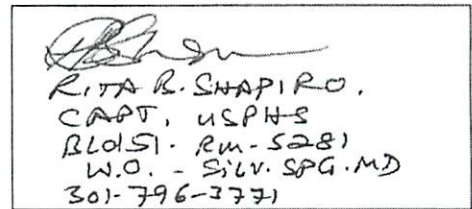 RITA B. SHAPIRO.
CAPT, USPHS
BLD 51. RM-5281
W.O. - SILV. SPG. MD
301-796-3771